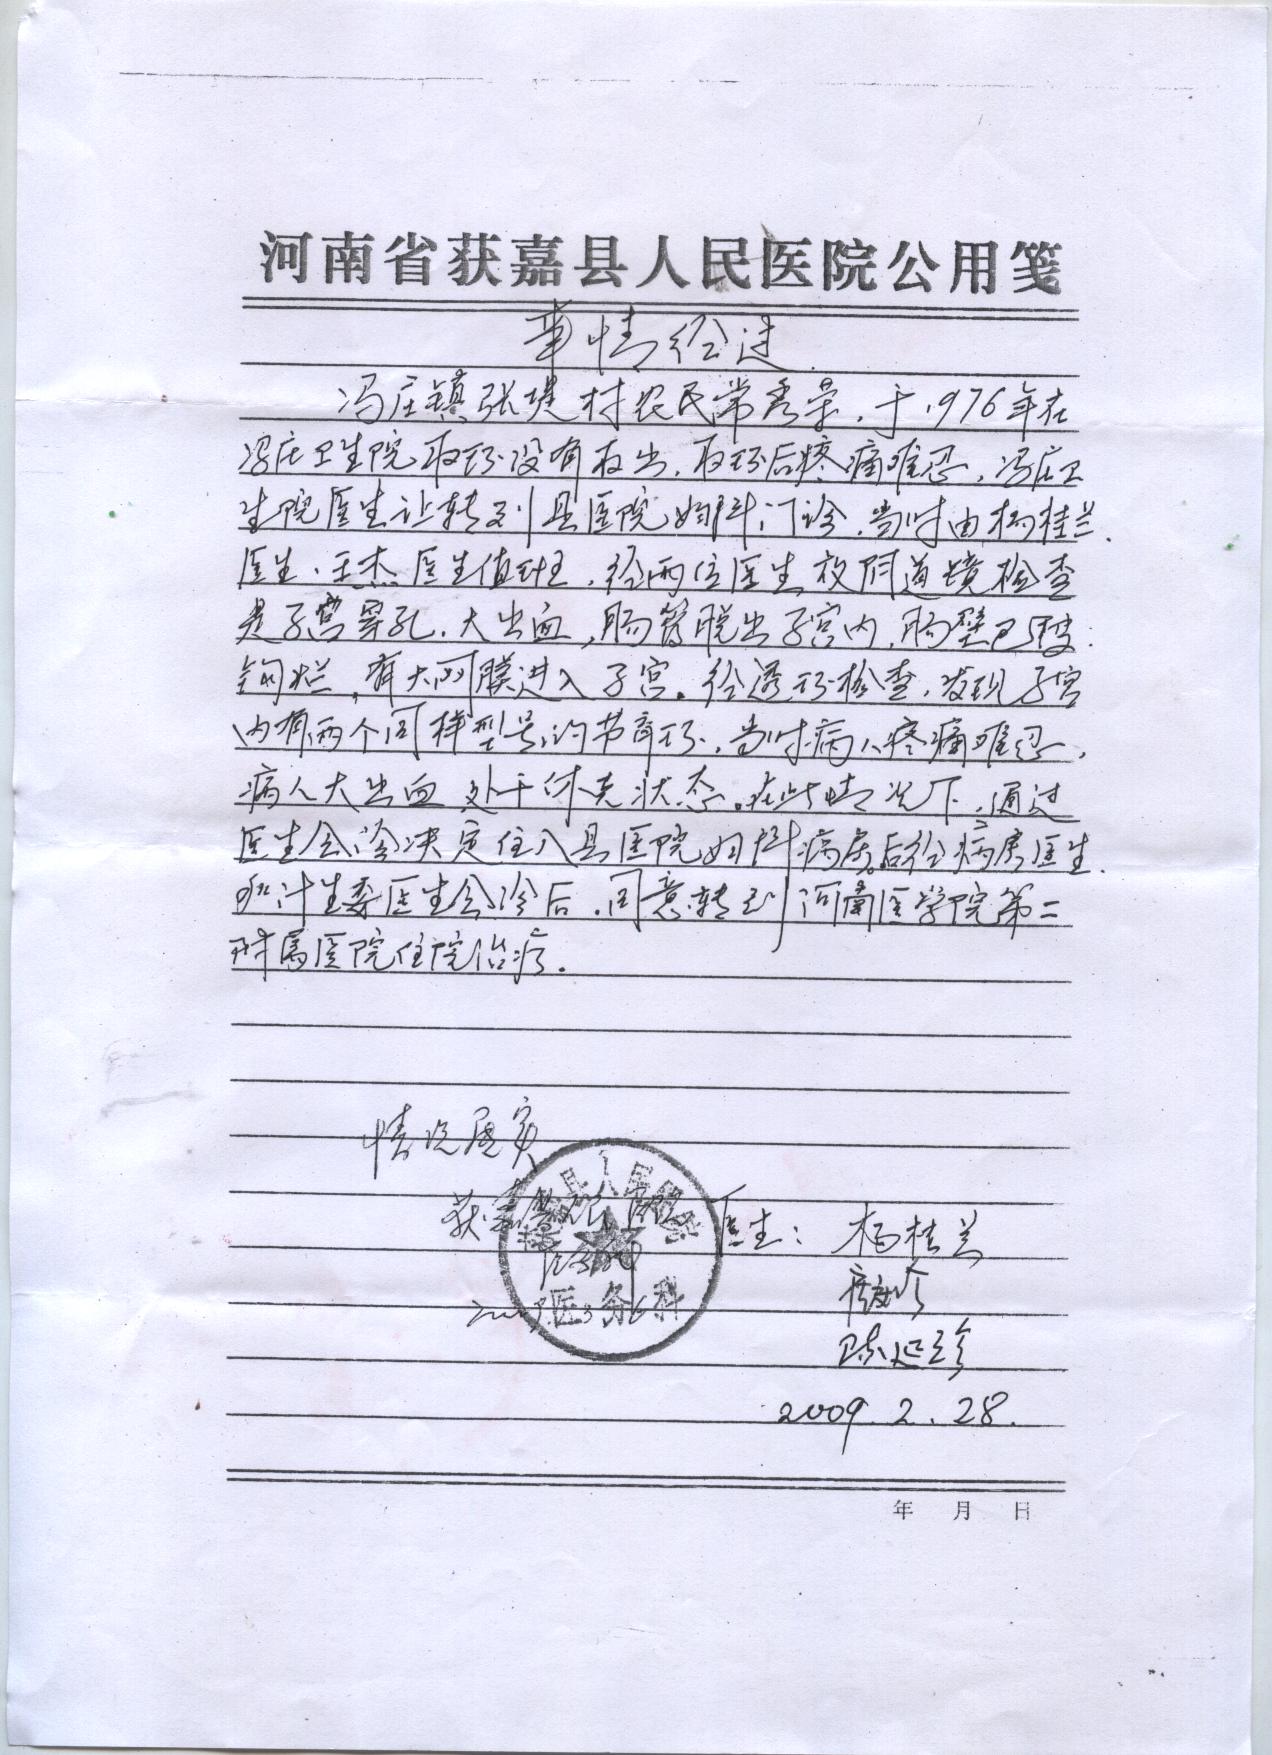 河南省获嘉县人民医院公用笺
事情经过
冯庄镇张堤村农民常秀荣，于1976年在
冯庄卫生院取环没有取出，取环后疼痛难忍，冯庄卫
生院医生让转到县医院妇科门诊，当时由杨桂兰
医生、王杰医生值班，经两位医生放阴道镜检查
是子宫穿孔，大出血，肠管脱出子宫内，肠壁已被
钩烂，有大网膜进入子宫。经透环检查，发现子宫
内有两个同样型号的节育环，当时病人疼痛难忍，
病人大出血处于休克状态。在此情况下，通过
医生会诊决定住入县医院妇科病房。后经病房医生
和计生委医生会诊后，同意转到河南医学院第二
附属医院住院治疗。
情况属实
县人民医
医务科
医生：杨桂兰
陈延玲
2009.2.28.
年 月 日